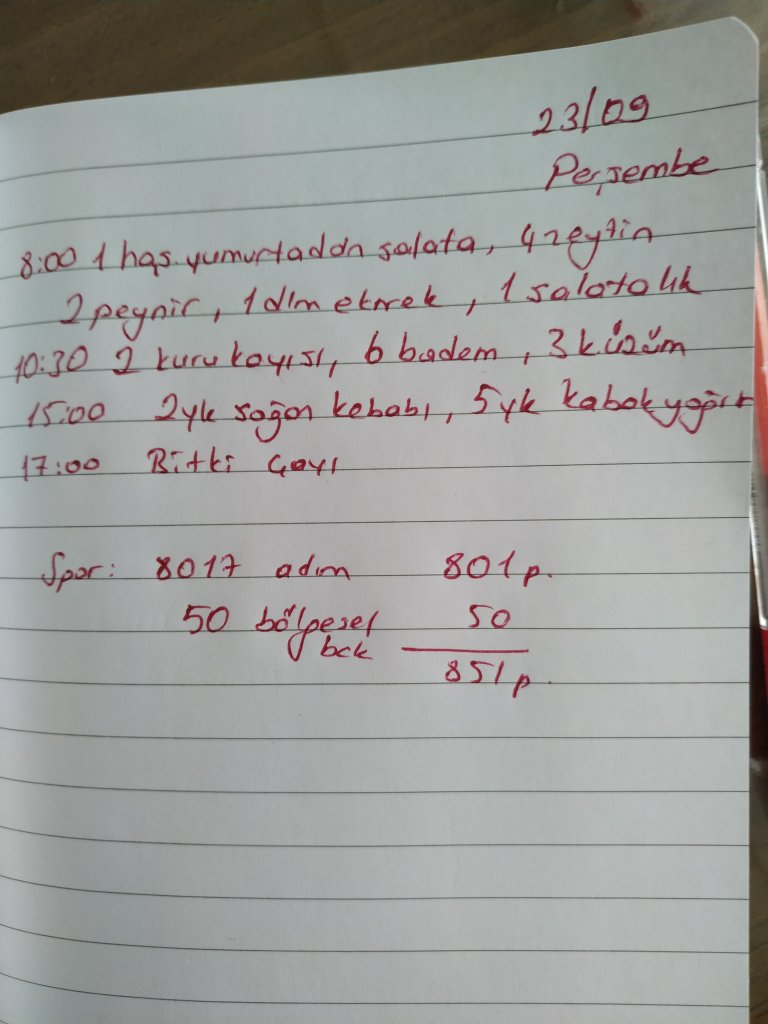 23/09
Perşembe
8:00 1 haş. yumurtadan salata, 4 zeytin
2 peynir, 1 dlm ekmek, 1 salatalık
10:30 2 kuru kayısı, 6 badem, 3 k üzüm
15:00 2yk soğan kebabı, 5yk kabak yoğurt
17:00 Bitki çayı
Spor: 8017 adım 801 p.
50 bölgesel 50
bck
851 p.